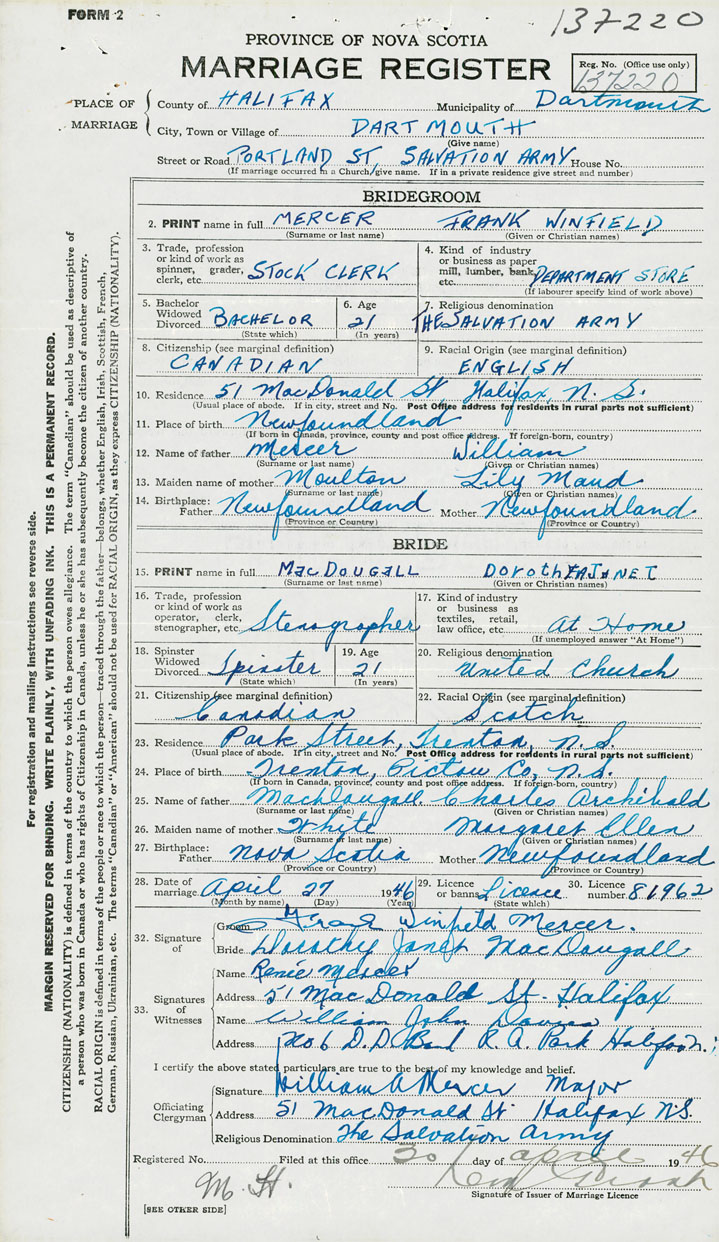 FORM 2
137220
PROVINCE OF NOVA SCOTIA
MARRIAGE REGISTER
Reg. No. (Office use only)
137220
PLACE OF MARRIAGE
County of HALIFAX Municipality of Dartmouth
City, Town or Village of DARTMOUTH
(Give name)
Street or Road PORTLAND ST, SALVATION ARMY House No.
(If marriage occurred in a Church give name. If in a private residence give street and number)
BRIDEGROOM
2. PRINT name in full MERCER FRANK WINFIELD
(Surname or last name) (Given or Christian names)
3. Trade, profession
or kind of work as
spinner, grader,
clerk, etc. STOCK CLERK
4. Kind of industry
or business as paper
mill, lumber, bank,
etc. DEPARTMENT STORE
(If labourer specify kind of work above)
5. Bachelor
Widowed
Divorced BACHELOR
(State which)
6. Age
21
(In years)
7. Religious denomination
THE SALVATION ARMY
8. Citizenship (see marginal definition)
CANADIAN
9. Racial Origin (see marginal definition)
ENGLISH
10. Residence 51 MacDonald St, Halifax, N. S.
(Usual place of abode. If in city, street and No. Post Office address for residents in rural parts not sufficient)
11. Place of birth Newfoundland
(If born in Canada, province, county and post office address. If foreign-born, country)
12. Name of father Mercer William
(Surname or last name) (Given or Christian names)
13. Maiden name of mother Moulton Lily Maud
(Surname or last name) (Given or Christian names)
14. Birthplace:
Father Newfoundland Mother Newfoundland
(Province or Country) (Province or Country)
BRIDE
15. PRINT name in full MacDOUGALL DOROTHY JANET
(Surname or last name) (Given or Christian names)
16. Trade, profession
or kind of work as
operator, clerk,
stenographer, etc. Stenographer
17. Kind of industry
or business as
textiles, retail,
law office, etc. At Home
(If unemployed answer "At Home")
18. Spinster
Widowed
Divorced Spinster
(State which)
19. Age
21
(In years)
20. Religious denomination
United Church
21. Citizenship (see marginal definition)
Canadian
22. Racial Origin (see marginal definition)
Scotch
23. Residence Park Street, Trenton, N.S.
(Usual place of abode. If in city, street and No. Post Office address for residents in rural parts not sufficient)
24. Place of birth Trenton, Pictou Co, N.S.
(If born in Canada, province, county and post office address. If foreign-born, country)
25. Name of father MacDougall Charles Archibald
(Surname or last name) (Given or Christian names)
26. Maiden name of mother White Margaret Ellen
(Surname or last name) (Given or Christian names)
27. Birthplace:
Father Nova Scotia Mother Newfoundland
(Province or Country) (Province or Country)
28. Date of
marriage April 27 1946
(Month by name) (Day) (Year)
29. Licence
or banns Licence
(State which)
30. Licence
number 81962
32. Signature of
Groom Frank Winfield Mercer.
Bride Dorothy Janet MacDougall
33. Signatures of Witnesses
Name Renée Mercer
Address 51 MacDonald St. Halifax
Name William John Davies
Address No 6 D.D. Band R.A. Park Halifax
I certify the above stated particulars are true to the best of my knowledge and belief.
Officiating Clergyman
Signature William A Mercer Major
Address 51 MacDonald St. Halifax N.S.
Religious Denomination The Salvation Army
Registered No. Filed at this office 30 day of april 1946
M. H.
Signature of Issuer of Marriage Licence
[SEE OTHER SIDE]
For registration and mailing instructions see reverse side.
MARGIN RESERVED FOR BINDING. WRITE PLAINLY, WITH UNFADING INK. THIS IS A PERMANENT RECORD.
CITIZENSHIP (NATIONALITY) is defined in terms of the country to which the person owes allegiance. The term "Canadian" should be used as descriptive of
a person who was born in Canada or who has rights of Citizenship in Canada, unless he or she has subsequently become the citizen of another country.
RACIAL ORIGIN is defined in terms of the people or race to which the person—traced through the father—belongs, whether English, Irish, Scottish, French,
German, Russian, Ukrainian, etc. The terms "Canadian" or "American" should not be used for RACIAL ORIGIN, as they express CITIZENSHIP (NATIONALITY).